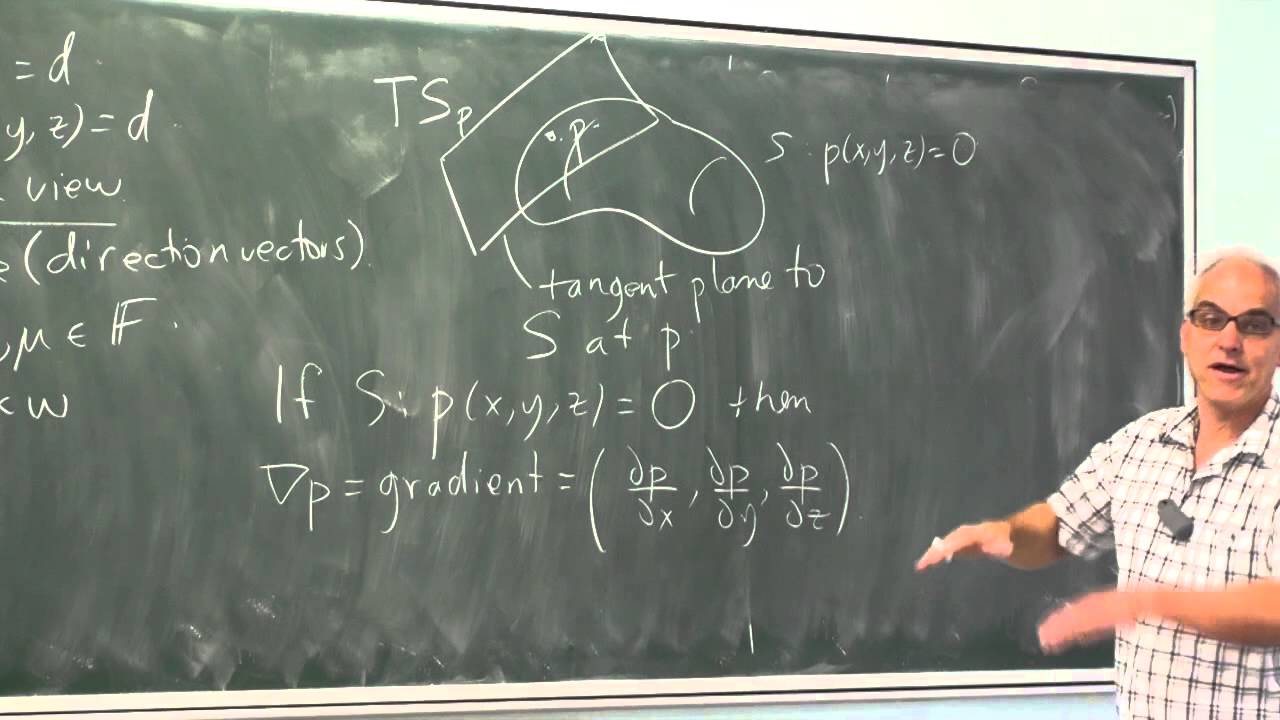 = d
y, z) = d.
view
(direction vectors).
, μ ∈ F.
× w
TSp
p
S : p(x,y,z) = 0
tangent plane to
S at p.
If S: p(x,y,z) = 0 then
∇p = gradient = (∂p/∂x, ∂p/∂y, ∂p/∂z).